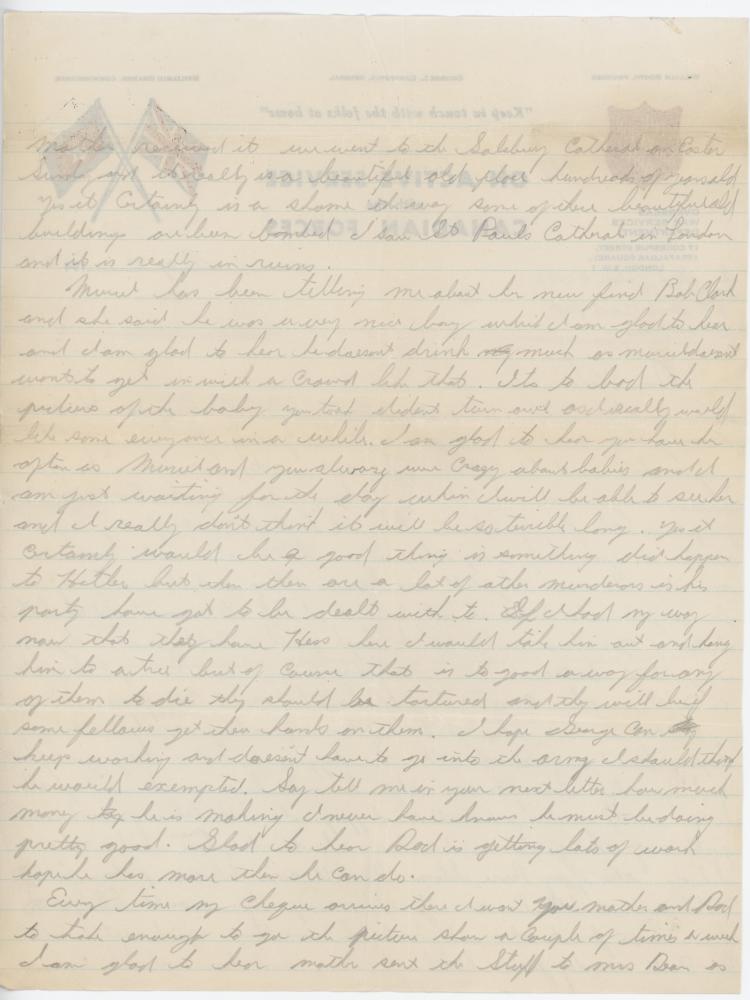 Mother received it we went to the Salsbury Catheral on Easter
Sunday and it really is a beautiful old place hundreds of years old
yes it Certainly is a shame the way some of these beautiful old
buildings are been bombed I saw St Pauls Catheral in London
and it is really in ruins.
Muriel has been telling me about her new find Bob Clark
and she said he was a very nice boy which I am glad to hear
and I am glad to hear he doesnt drink much as Muriel doesnt
want to get in with a Crowd like that. Its to bad the
pictures of the baby you took dident turn out as I really would
like some everyonce in a while. I am glad to hear you have her
often as Muriel and you always were Crazy about babies and I
am just waiting for the day when I will be able to see her
and I really dont think it will be so terrible long. Yes it
Certainly would be a good thing is something did happen
to Hitler but then there are a lot of other murderers in his
party have got to be dealt with to. If I had my way
now that they have Hess here I would take him out and hang
him to a tree but of Course that is to good a way for any
of them to die they should be tortured and they will be if
some fellows get their hands on them. I hope George Can
keep working and doesent have to go into the army I should think
he would exempted. Say tell me in your next letter how much
money he is making I never have known he must be doing
pretty good. Glad to hear Dad is getting lots of work
hope he has more then he Can do.
Every time my Cheque arrives there I want you mother and Dad
to take enough to go the picture show a Couple of times a week
I am glad to hear mother sent the Stuff to Mrs Dean as
"Keep in touch with the folks at home"
ON ACTIVE SERVICE
CANADIAN FORCES